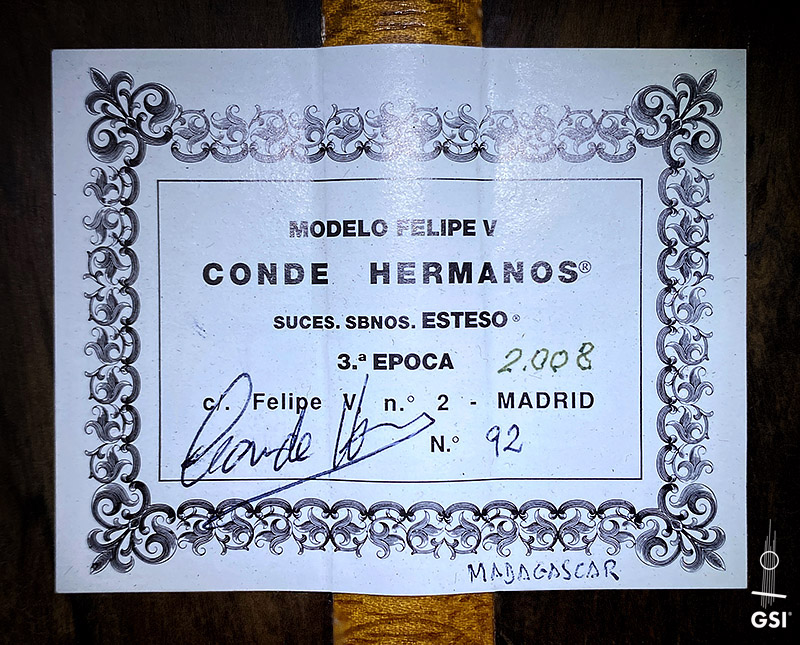 MODELO FELIPE V
CONDE HERMANOS®
SUCES. SBNOS. ESTESO®
3.ª EPOCA 2.008
c/. Felipe V n.° 2 - MADRID
Conde
N.° 92
MADAGASCAR
GSI®